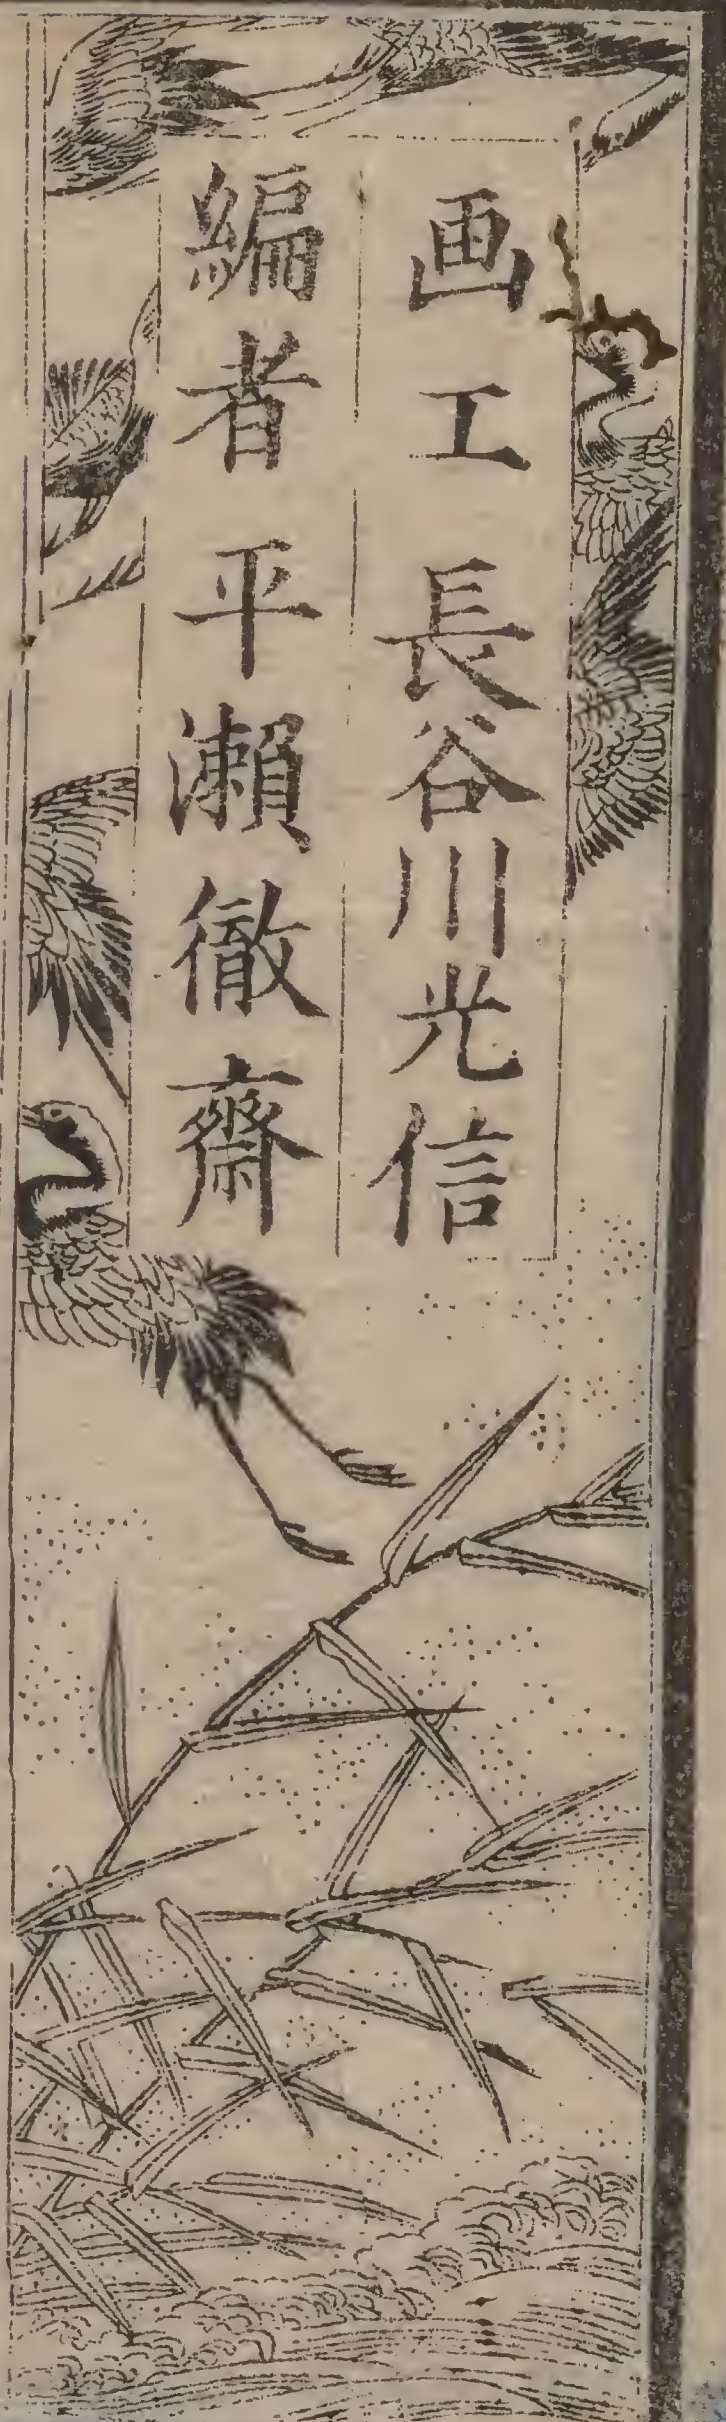 画工 長谷川光信
編者 平瀬徹齋